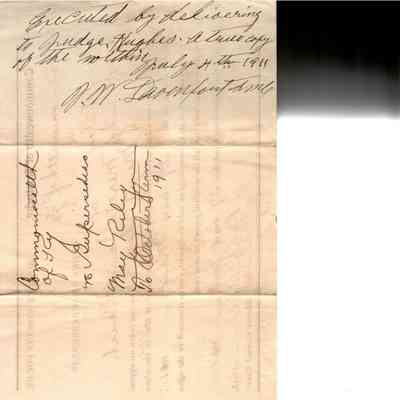 Executed by delivering
to Judge Hughes a true copy
of the within July 4th 1911
Commonwealth
of Ky
vs Supersedeas
May Riley
To October Term
1911